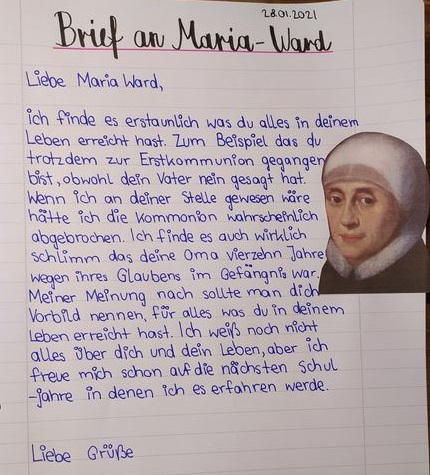 28.01.2021
Brief an Maria-Ward
Liebe Maria Ward,
ich finde es erstaunlich was du alles in deinem
Leben erreicht hast. Zum Beispiel das du
trotzdem zur Erstkommunion gegangen
bist, obwohl dein Vater nein gesagt hat.
Wenn ich an deiner Stelle gewesen wäre
hätte ich die Kommonion wahrscheinlich
abgebrochen. Ich finde es auch wirklich
schlimm das deine Oma vierzehn Jahre
wegen ihres Glaubens im Gefängnis war.
Meiner Meinung nach sollte man dich
Vorbild nennen, für alles was du in deinem
Leben erreicht hast. Ich weiß noch nicht
alles über dich und dein Leben, aber ich
freue mich schon auf die nächsten Schul
-jahre in denen ich es erfahren werde.
Liebe Grüße